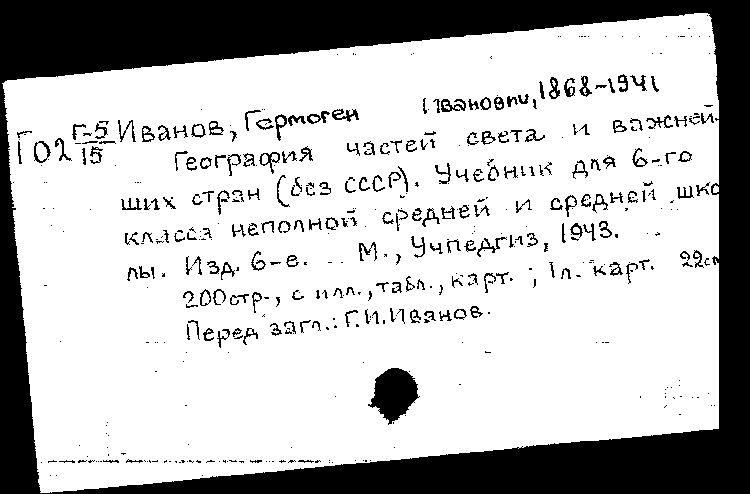 Г02 Г-5/15 Иванов, Гермоген Иванович, 1868-1941
География частей света и важней-
ших стран (без СССР). Учебник для 6-го
класса неполной средней и средней шко
лы. Изд. 6-е. М., Учпедгиз, 1943.
200стр., с илл., табл., карт. ; 1л. карт. 22см
Перед загл.: Г.И.Иванов.